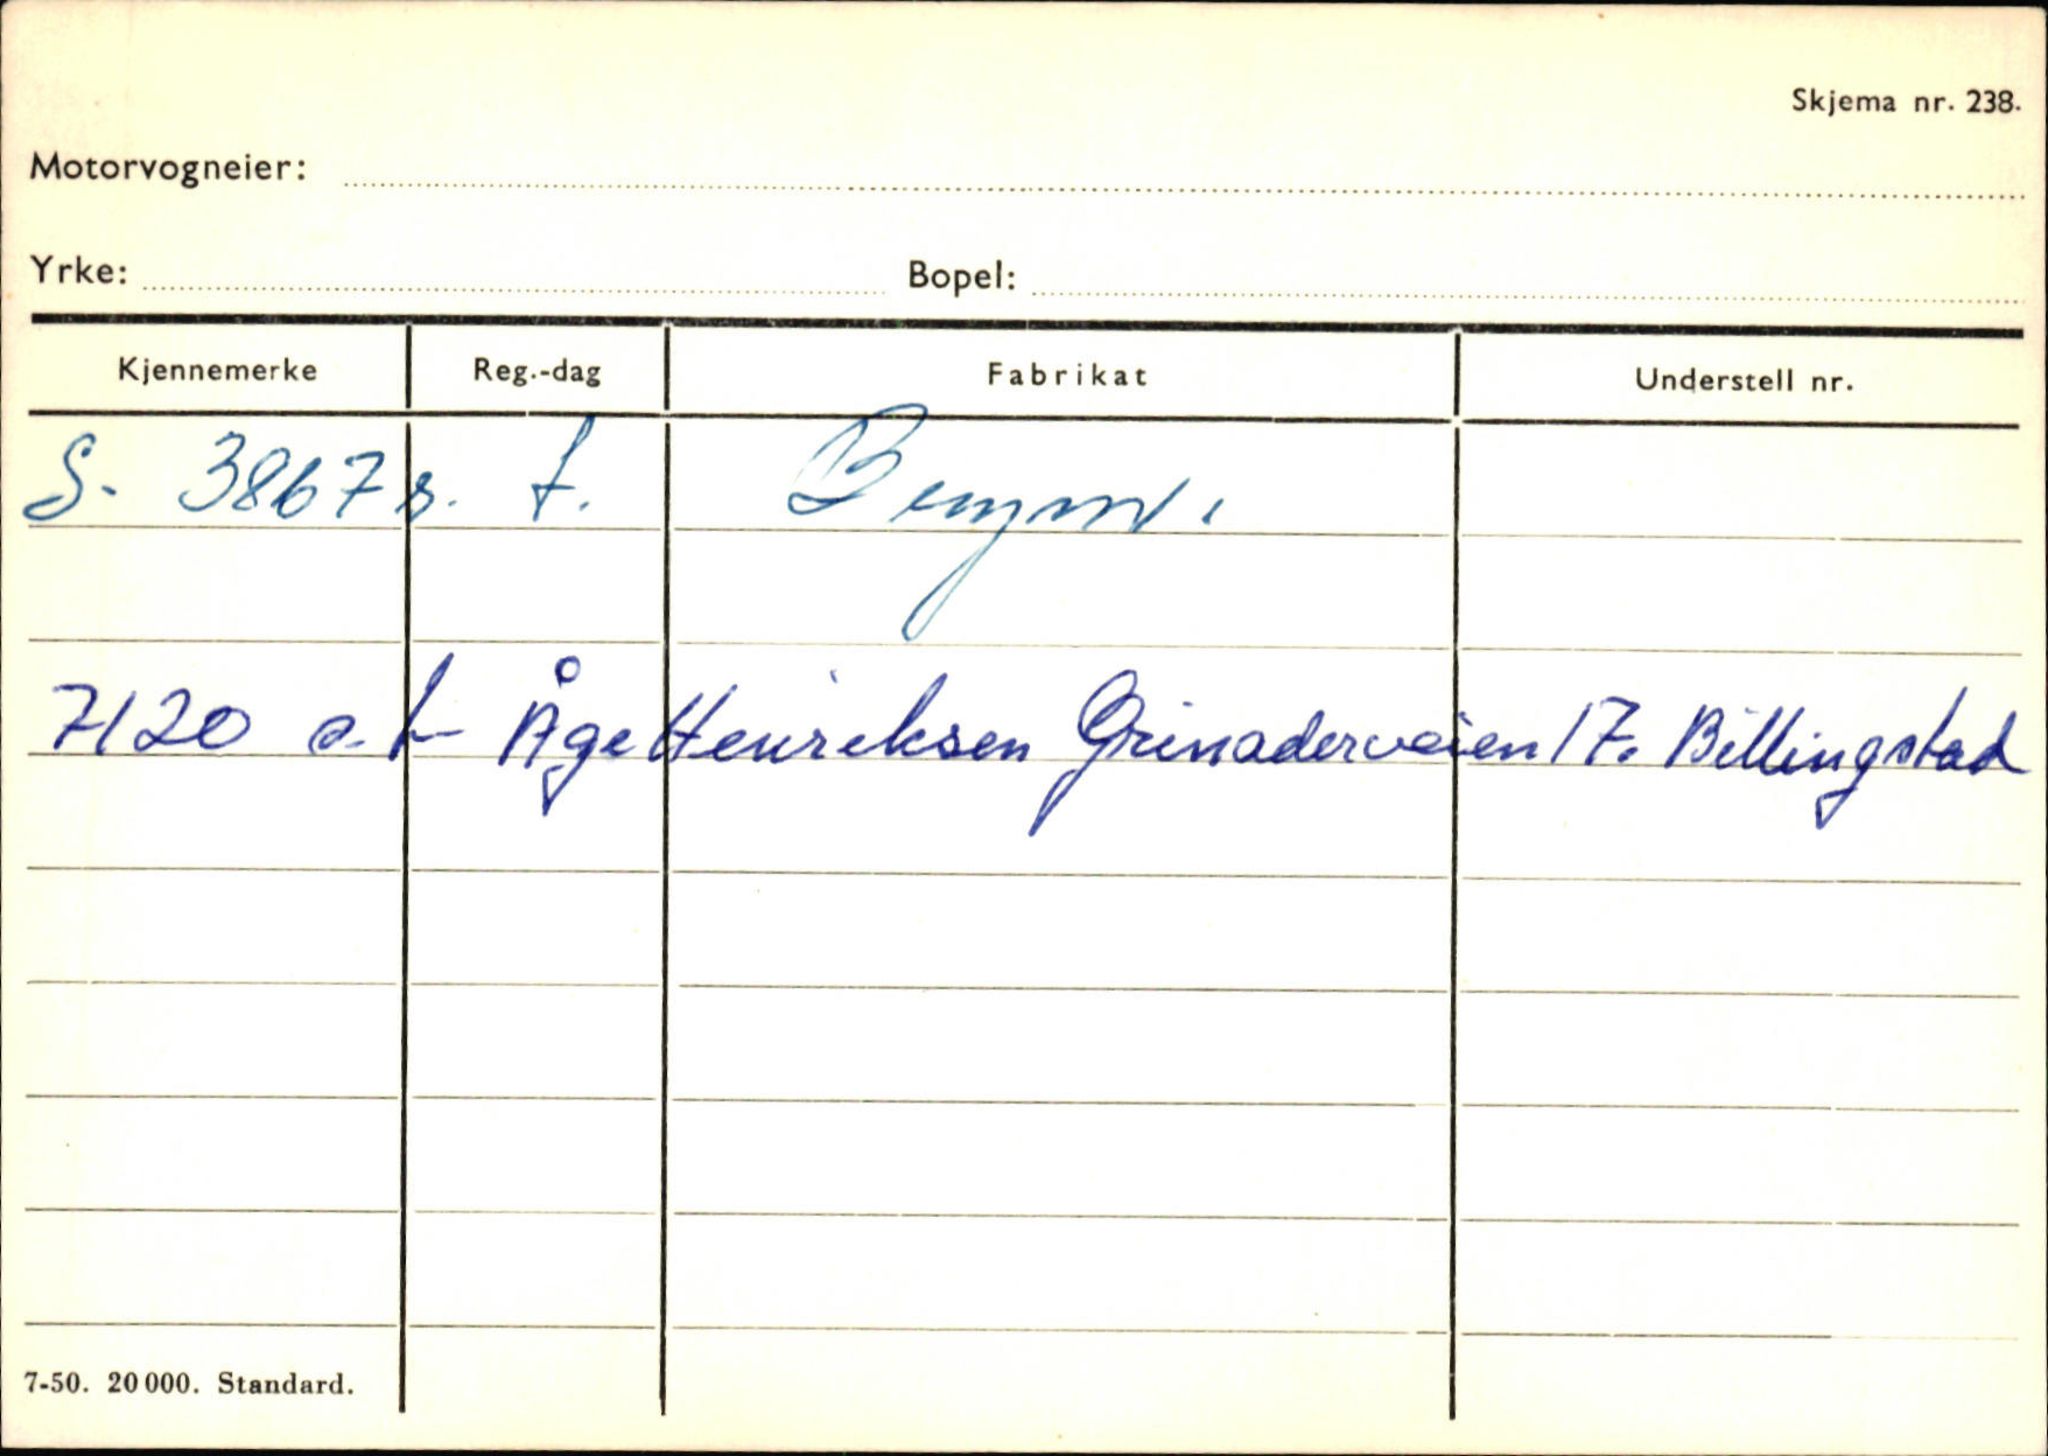 Skjema nr. 238.
Motorvogneier:
Yrke: Bopel:
Kjennemerke Reg.-dag Fabrikat Understell nr.
S. 3867 s. t.
7120 o. t Åge Henriksen Grinaderveien 17. Billingstad
7-50. 20 000. Standard.